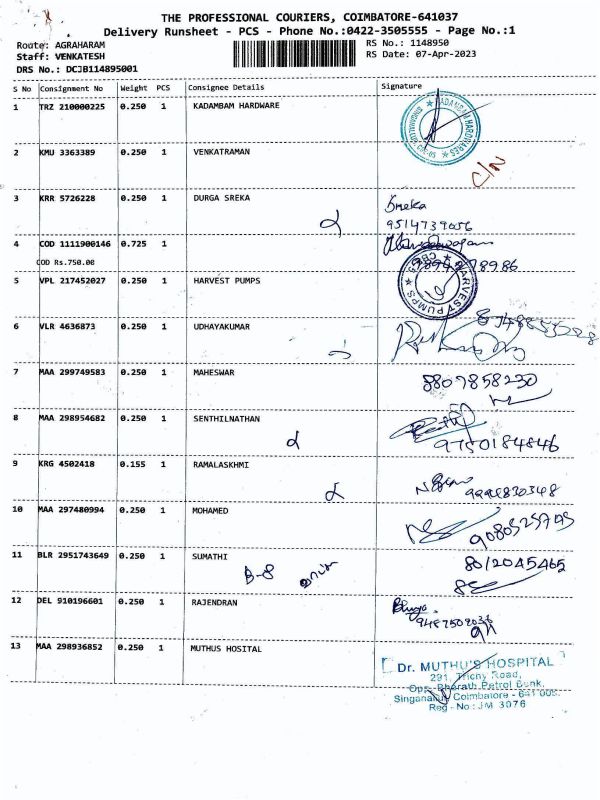 THE PROFESSIONAL COURIERS, COIMBATORE-641037
Delivery Runsheet - PCS - Phone No.:0422-3505555 - Page No.:1
Route: AGRAHARAM
Staff: VENKATESH
DRS No.: DCJB114895001
RS No.: 1148950
RS Date: 07-Apr-2023
S No Consignment No Weight PCS Consignee Details Signature
1 TRZ 210000225 0.250 1 KADAMBAM HARDWARE
2 KMU 3363389 0.250 1 VENKATRAMAN
C/N
3 KRR 5726228 0.250 1 DURGA SREKA
Sreka
9514739056
4 COD 1111900146 0.725 1
COD Rs.750.00
5 VPL 217452027 0.250 1 HARVEST PUMPS
HARVEST PUMPS
6 VLR 4636873 0.250 1 UDHAYAKUMAR
7 MAA 299749583 0.250 1 MAHESWAR
8807858230
8 MAA 298954682 0.250 1 SENTHILNATHAN
9750184846
9 KRG 4502418 0.155 1 RAMALASKHMI
10 MAA 297480994 0.250 1 MOHAMED
11 BLR 2951743649 0.250 1 SUMATHI
B-8
8012045465
12 DEL 910196601 0.250 1 RAJENDRAN
13 MAA 298936852 0.250 1 MUTHUS HOSITAL
Dr. MUTHU'S HOSPITAL
291, Trichy Road,
Opp. Bharath Petrol Bunk,
Singanallur, Coimbatore - 641 005.
Reg - No : JM 3076